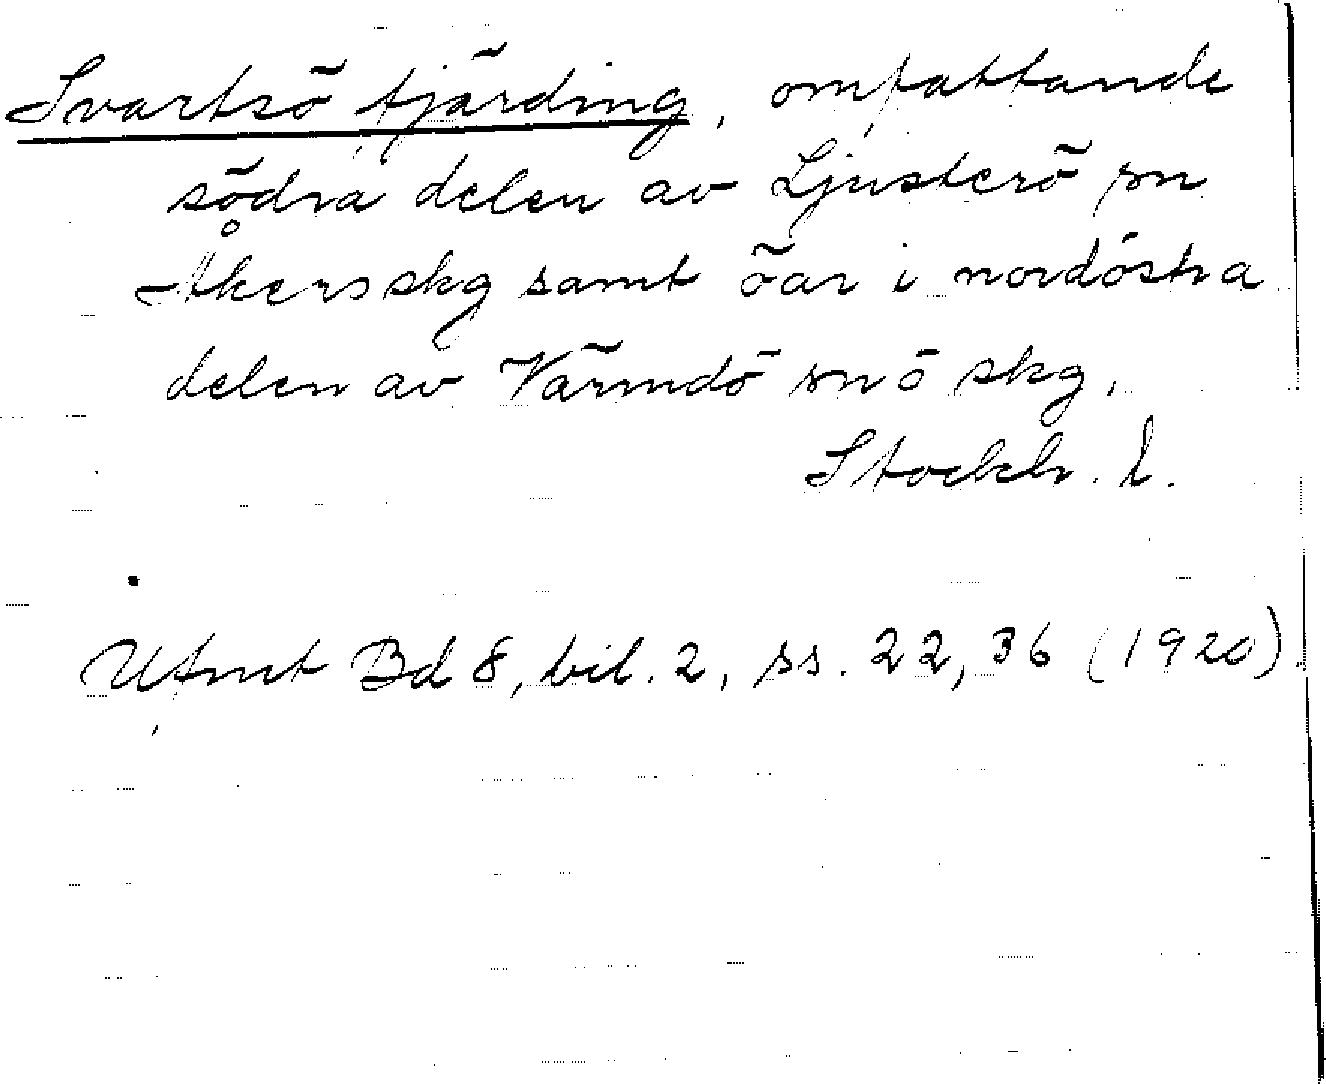 Svartsö fjärding, omfattande
södra delen av Ljusterö sn
Åkers skg samt öar i nordöstra
delen av Värmdö sn o skg,
Stockh. l.
Utmt Bd 8, bil. 2, ss. 22, 36 (1920)